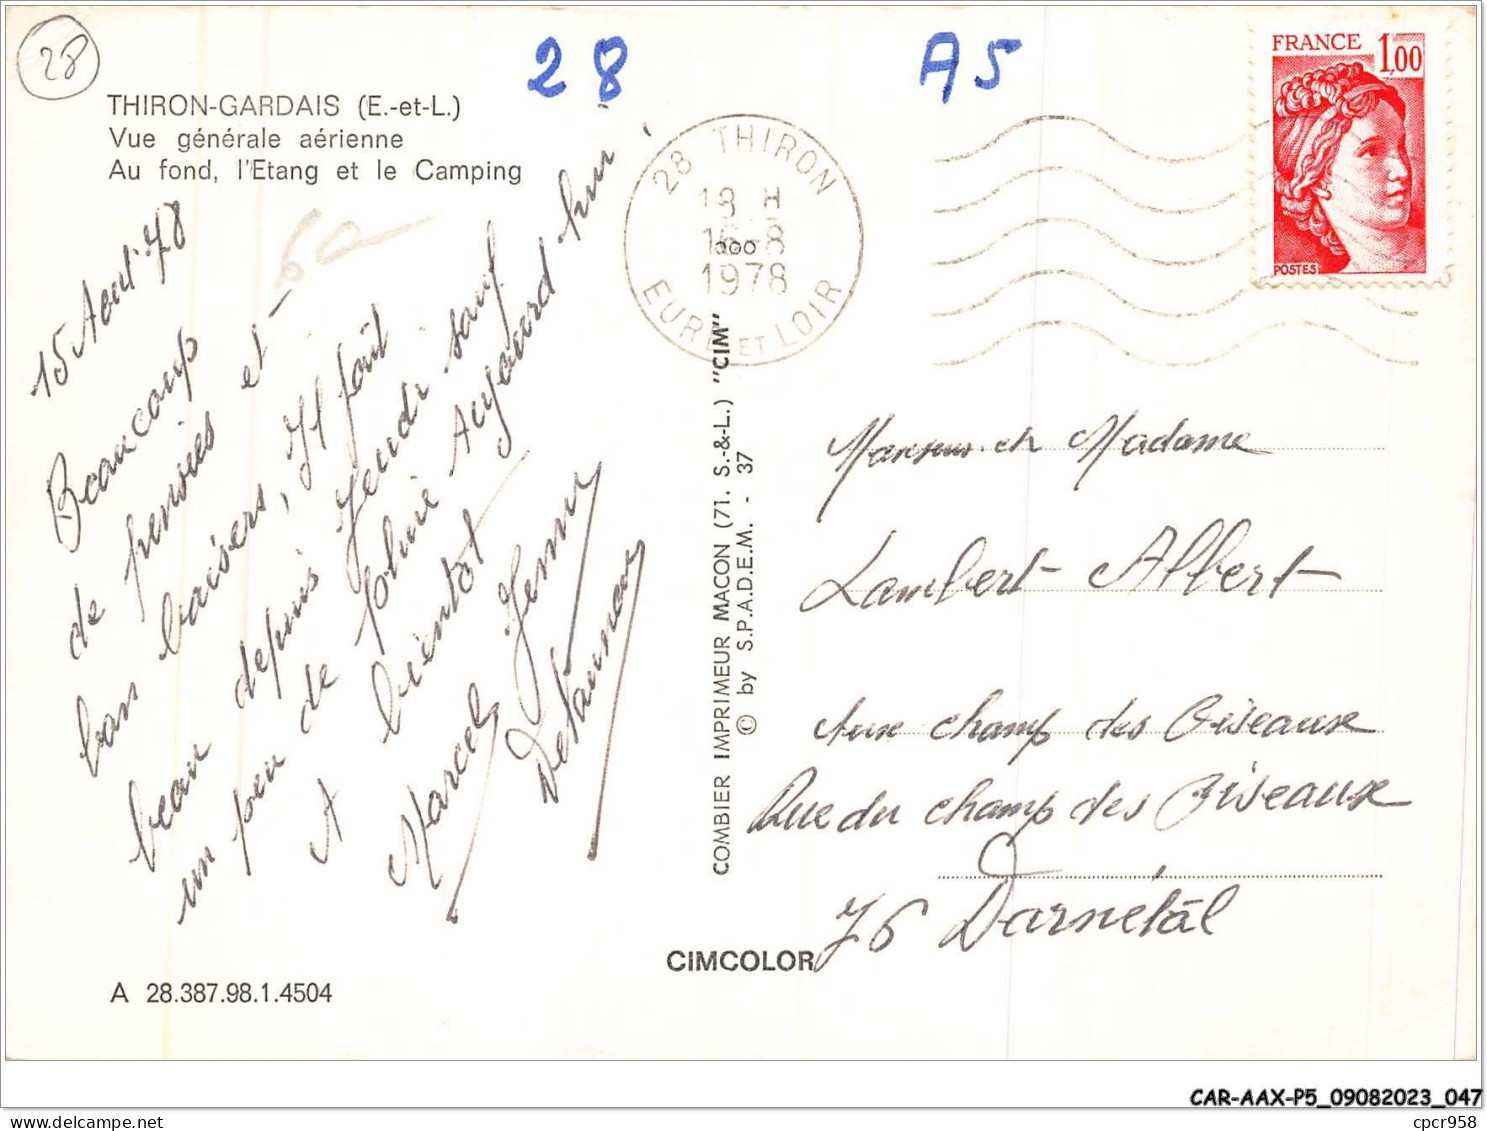 28
28
A5
FRANCE 1,00
POSTES
THIRON-GARDAIS (E.-et-L.)
Vue générale aérienne
Au fond, l'Etang et le Camping
28 THIRON
18 H
16-8
1978
EURE ET LOIR
15 Aout 78
Beaucoup
de pensées et
bon baisers, Il fait
beau depuis Jeudi sauf
un peu de pluie Aujourd hui
A bientot
Marcel
COMBIER IMPRIMEUR MACON (71. S.-&-L.) "CIM"
© by S.P.A.D.E.M. - 37
Monsieur et Madame
Lambert Albert
Aux champ des Oiseaux
Rue du champ des Oiseaux
76 Darnétal
CIMCOLOR
A 28.387.98.1.4504
CAR-AAX-P5_09082023_047
cpcr958